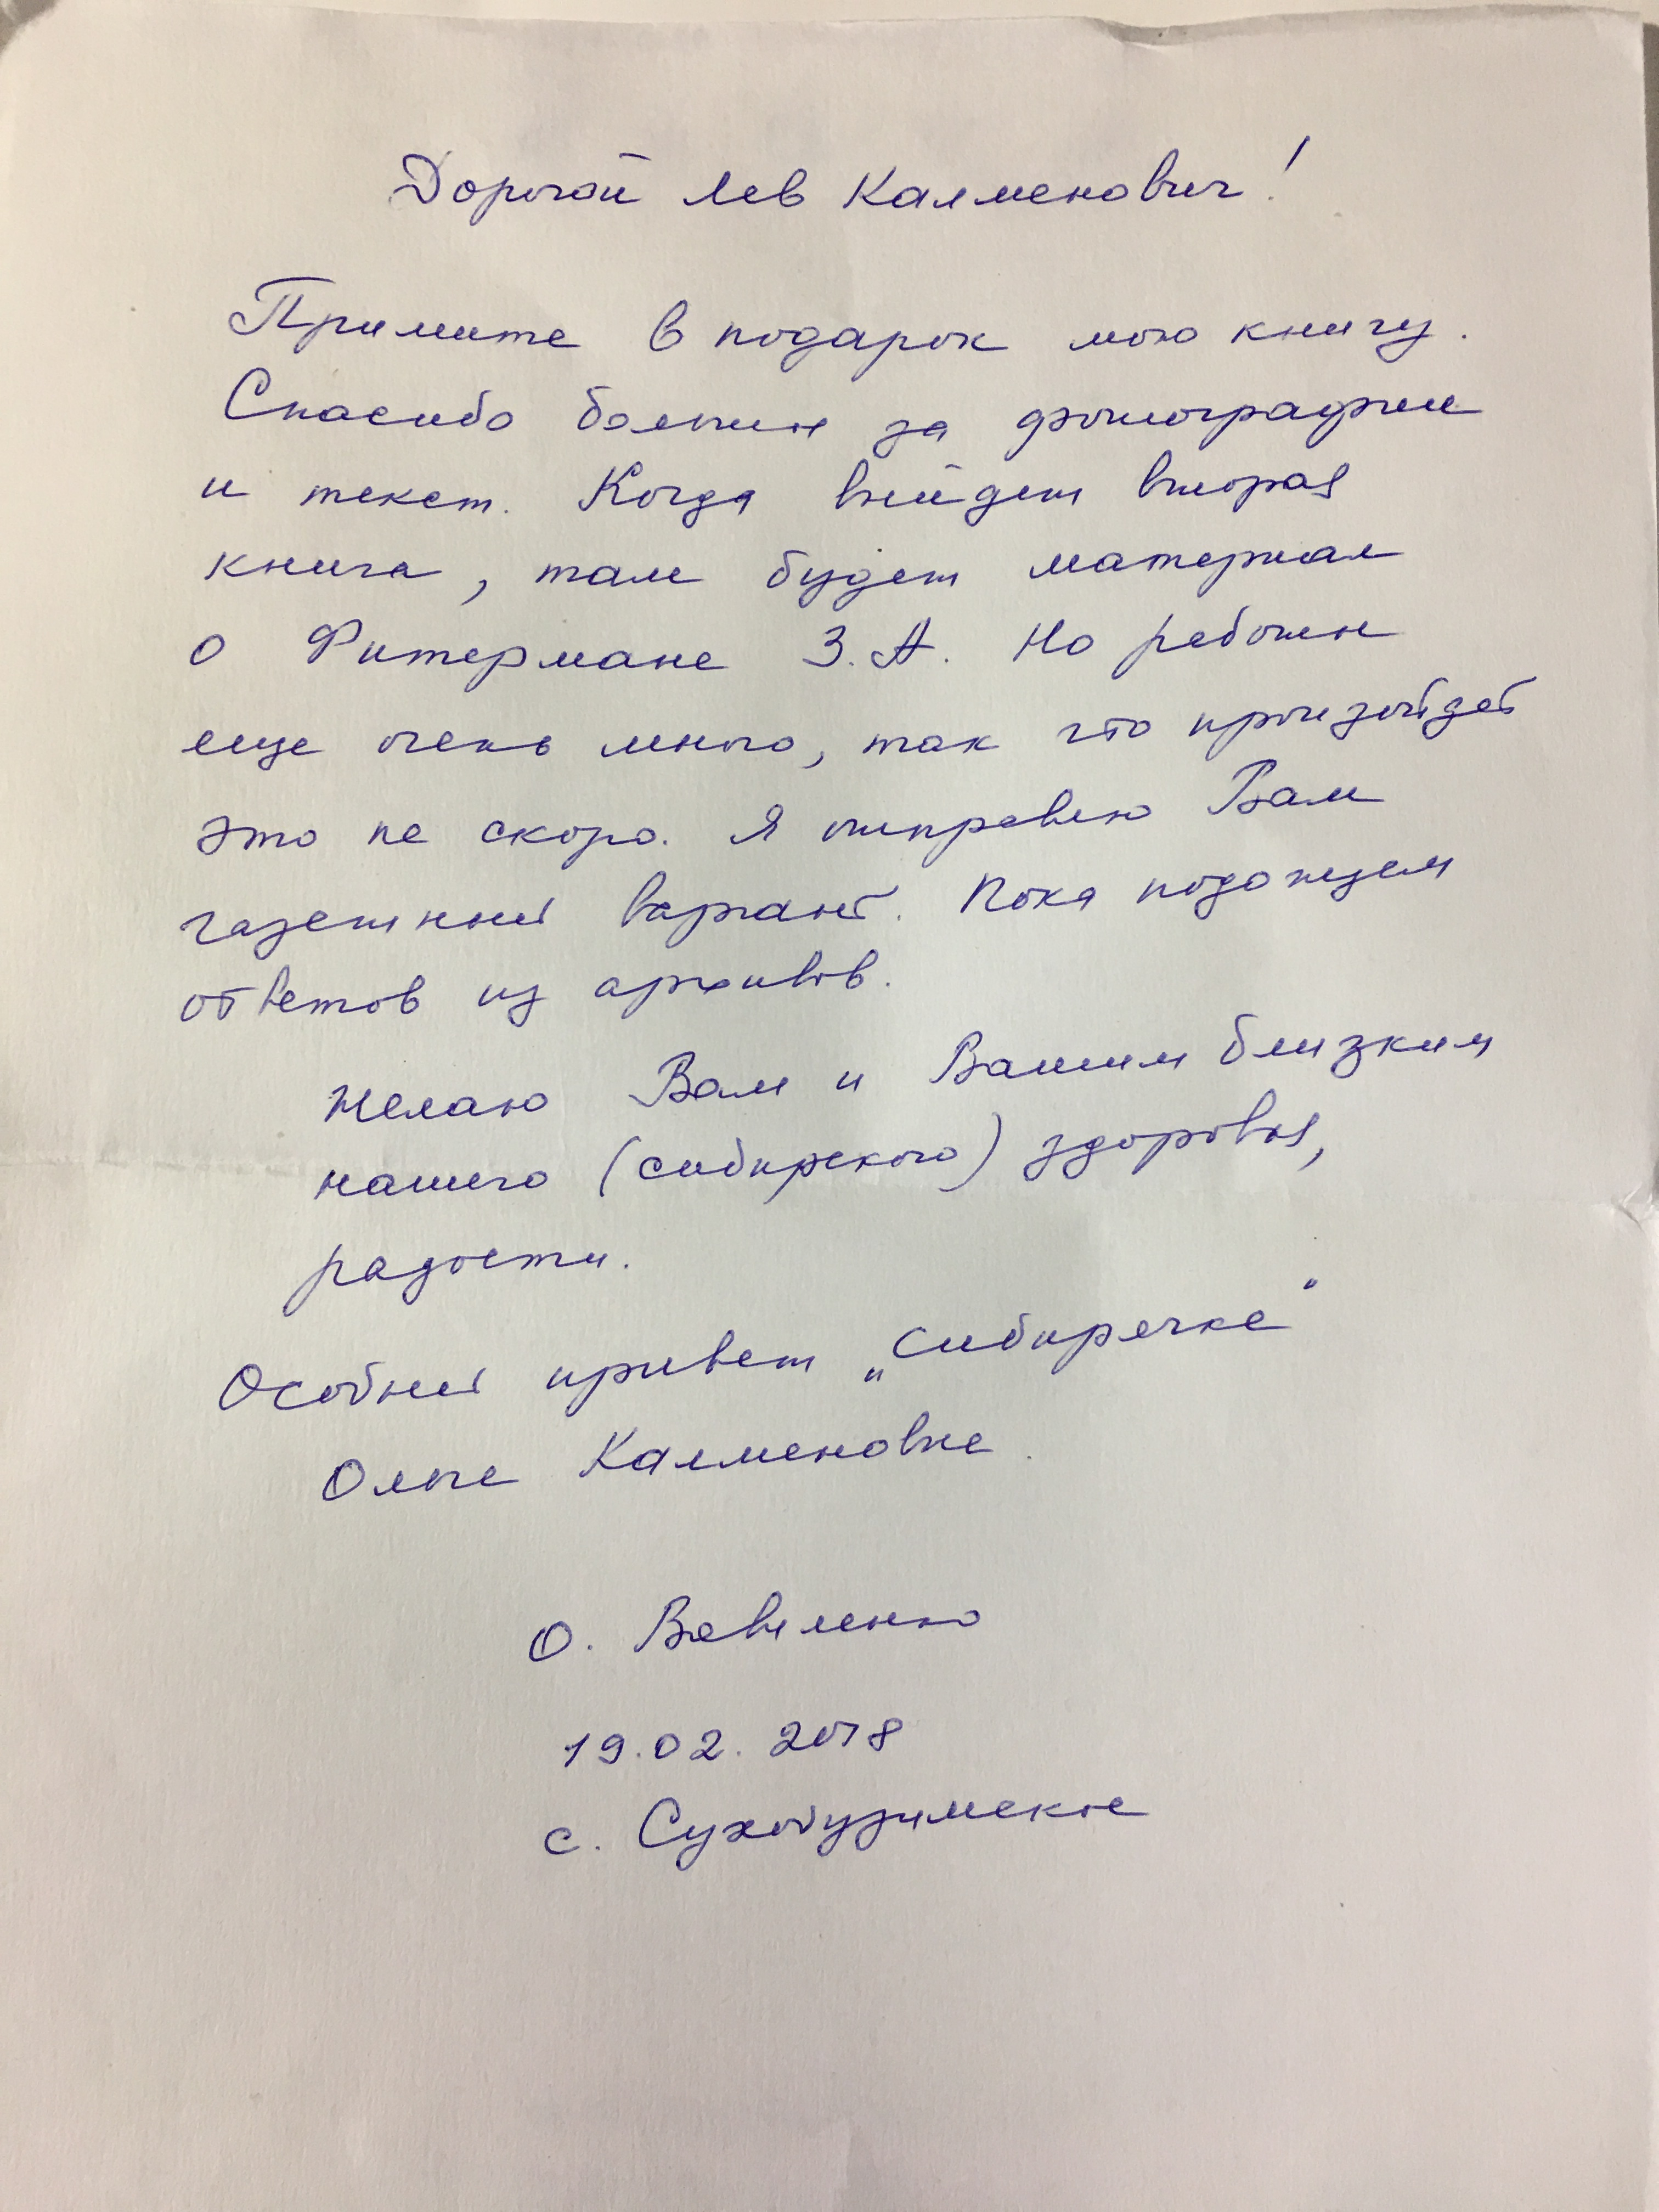 Дорогой Лев Калменович!
Примите в подарок мою книгу.
Спасибо большое за фотографии
и текст. Когда выйдет вторая
книга, там будет материал
о Фитермане З.А. Но работы
еще очень много, так что произойдет
это не скоро. Я отправлю Вам
газетный вариант. Пока подождем
ответов из архивов.
Желаю Вам и Вашим близким
нашего (сибирского) здоровья,
радости.
Особый привет „сибирячке"
Ольге Калменовне.
О. Вавиленко
19.02.2018
с. Сухобузимское